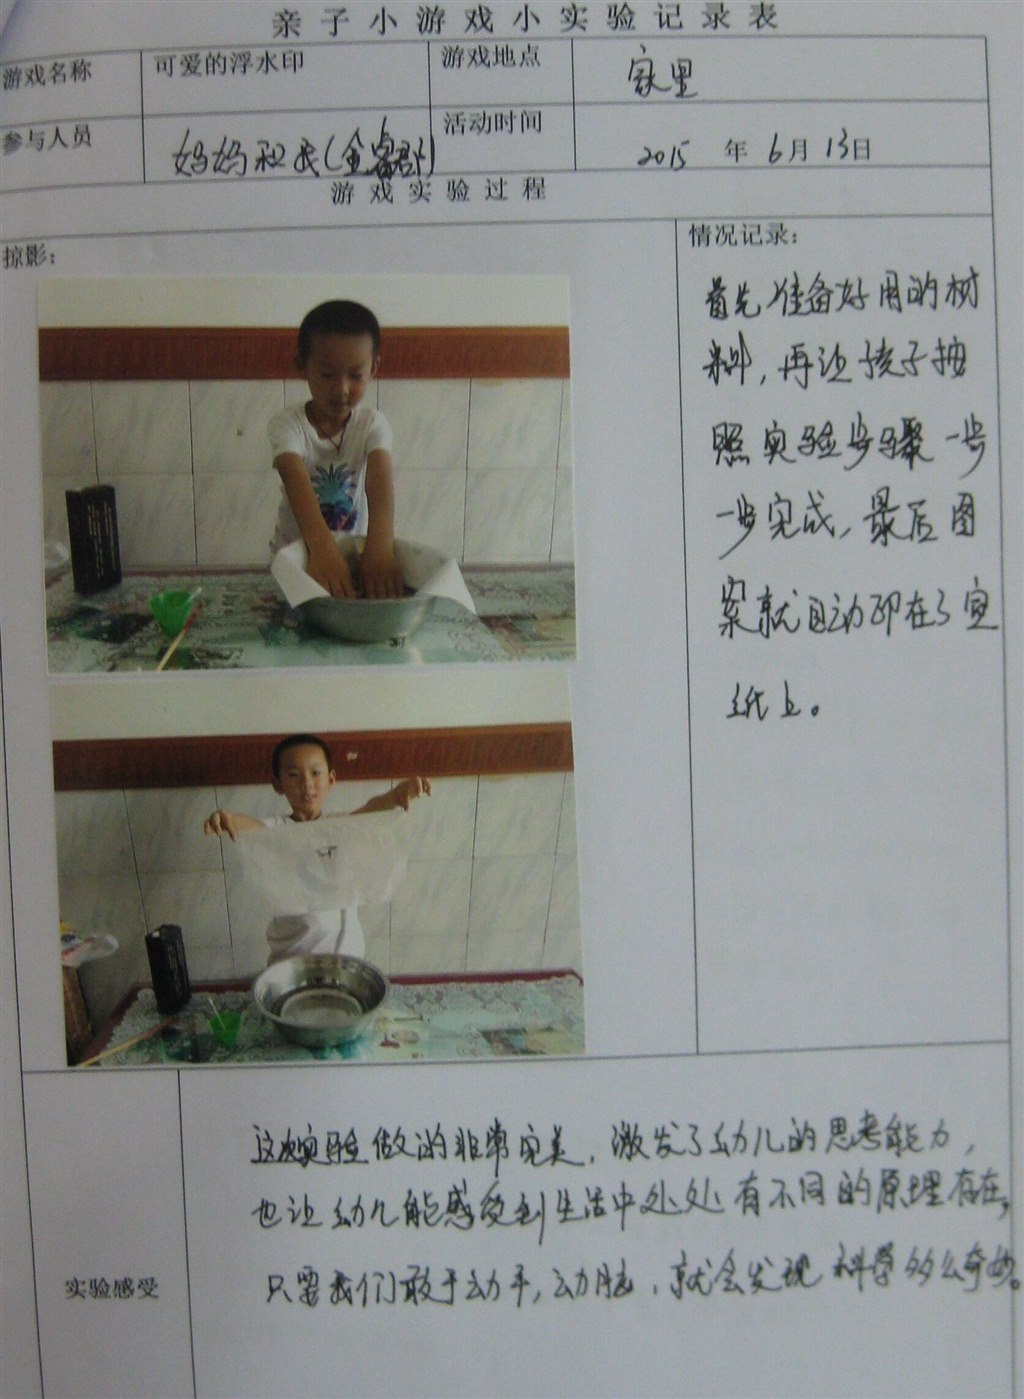 亲子小游戏小实验记录表
游戏名称 可爱的浮水印 游戏地点 家里
参与人员 妈妈和我(金睿 活动时间 2015 年 6月 13日
游戏实验过程
掠影：
情况记录：
首先准备好用的材
料，再让孩子按
照实验步骤一步
一步完成，最后图
案就自动印在了宣
纸上。
这次实验做的非常完美，激发了幼儿的思考能力，
也让幼儿能感受到生活中处处有不同的原理存在，
只要我们敢于动手，动脑，就会发现科学多么奇妙。
实验感受